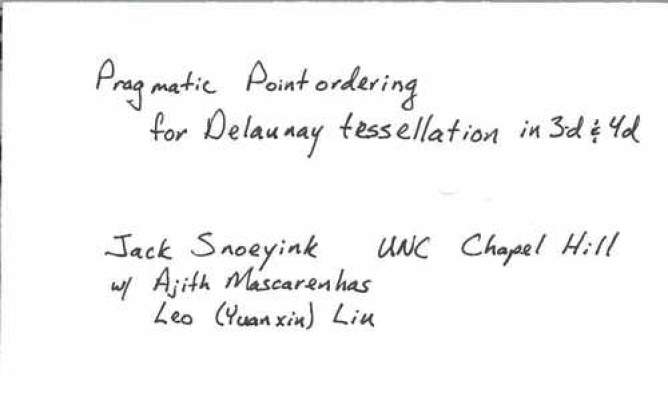 Pragmatic Point ordering
for Delaunay tessellation in 3-d & 4d
Jack Snoeyink UNC Chapel Hill
w/ Ajith Mascarenhas
Leo (Yuanxin) Liu